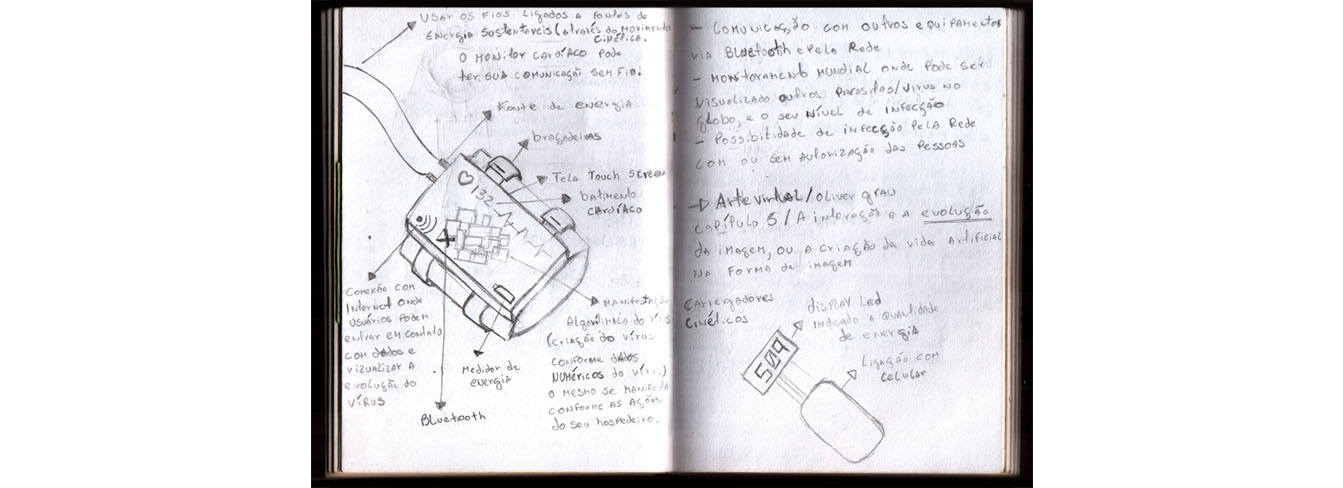 USAR OS FIOS LIGADOS A FONTES DE
ENERGIA SUSTENTAVEIS (ATRAVÉS DO MOVIMENTO
CINÉTICA.
O MONITOR CARDÍACO PODE
TER SUA COMUNICAÇÃO SEM FIO.
FONTE DE ENERGIA
braçadeiras
TELA TOUCH SCREEN
batimento
CARDÍACO
132
CONEXÃO COM
INTERNET ONDE
USUÁRIOS PODEM
ENTRAR EM CONTATO
COM DADOS E
VIZUALIZAR A
EVOLUÇÃO DO
VÍRUS
Bluetooth
Medidor de
ENERGIA
MANIFESTAÇÃO
ALGORÍTMICA DO VÍRUS
(CRIAÇÃO DO VÍRUS
CONFORME DADOS
NUMÉRICOS DO VÍRUS)
O MESMO SE MANIFESTA
CONFORME AS AÇÕES
DO SEU HOSPEDEIRO.
- COMUNICAÇÃO COM OUTROS EQUIPAMENTOS
VIA BLUETOOTH E PELA REDE
- MONITORAMENTO MUNDIAL ONDE PODE SER
VISUALIZADO OUTROS PARASITAS/VIRUS NO
globo, E O SEU NÍVEL DE INFECÇÃO
- POSSIBILIDADE DE INFECÇÃO PELA REDE
COM OU SEM AUTORIZAÇÃO DAS PESSOAS
→ Arte virtual/OLIVER GRAU
CAPÍTULO 5/A INTERAÇÃO E A EVOLUÇÃO
DA IMAGEM, OU A CRIAÇÃO DA VIDA ARTIFICIAL
NA FORMA DE IMAGEM
CARREGADORES
CINÉTICOS
DISPLAY LED
INDICADO A QUANTIDADE
DE ENERGIA
509
LIGAÇÃO COM
CELULAR